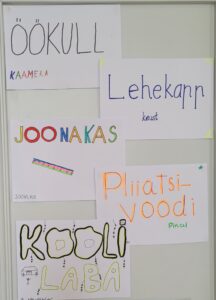 ÖÖKULL
KAAMERA
Lehekapp
kaust
JOONAKAS
JOONLAUD
Pliiatsi-
voodi
Pinal
KOOLI
LABA